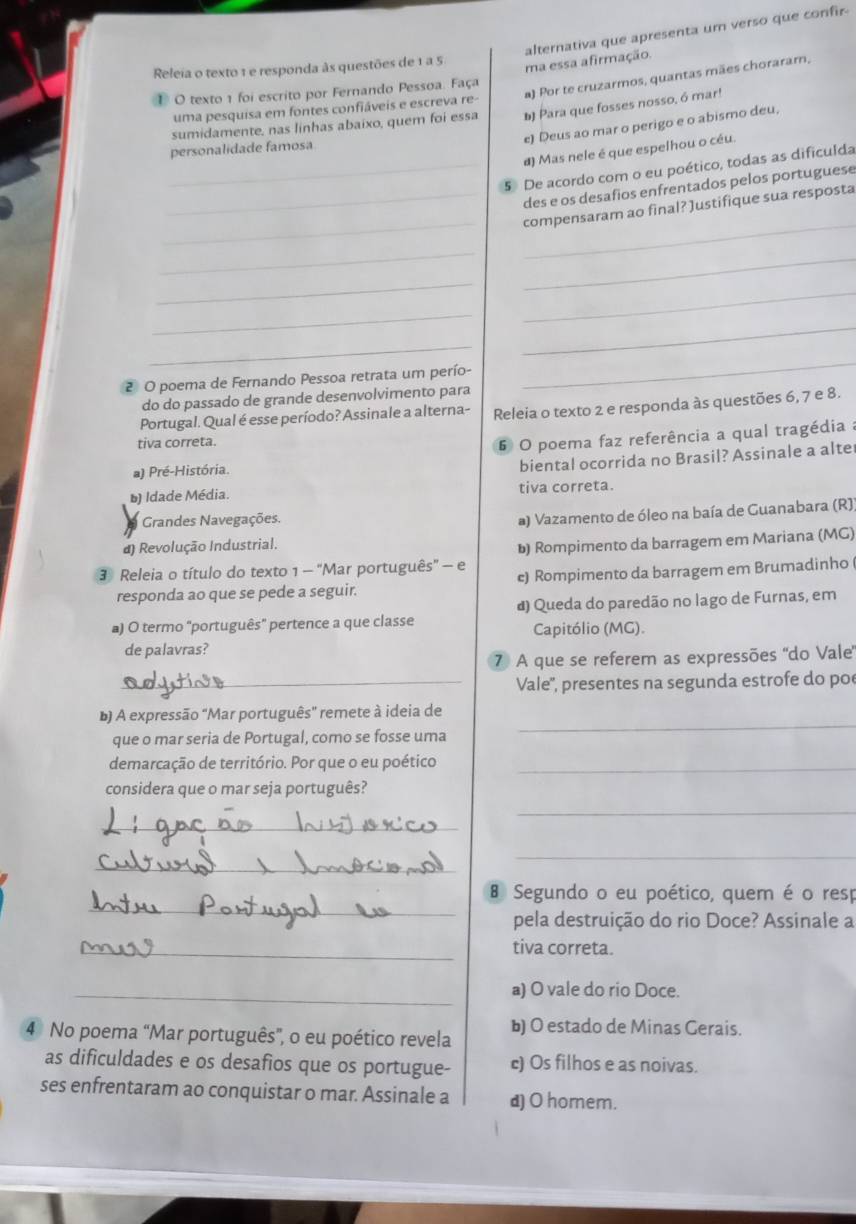 Releia o texto 1 e responda às questões de 1 a 5.
1 O texto 1 foi escrito por Fernando Pessoa. Faça
uma pesquisa em fontes confiáveis e escreva re-
sumidamente, nas linhas abaixo, quem foi essa
personalidade famosa.
2 O poema de Fernando Pessoa retrata um perío-
do do passado de grande desenvolvimento para
Portugal. Qual é esse período? Assinale a alterna-
tiva correta.
a) Pré-História.
b) Idade Média.
Grandes Navegações.
d) Revolução Industrial.
3 Releia o título do texto 1 – "Mar português" – e
responda ao que se pede a seguir.
a) O termo "português" pertence a que classe
de palavras?
adjetivo
b) A expressão "Mar português" remete à ideia de
que o mar seria de Portugal, como se fosse uma
demarcação de território. Por que o eu poético
considera que o mar seja português?
Ligação historico
cultural e Emocional
Entre Portugal eo
mar
4 No poema "Mar português", o eu poético revela
as dificuldades e os desafios que os portugue-
ses enfrentaram ao conquistar o mar. Assinale a
alternativa que apresenta um verso que confir-
ma essa afirmação.
a) Por te cruzarmos, quantas mães choraram,
b) Para que fosses nosso, ó mar!
c) Deus ao mar o perigo e o abismo deu,
d) Mas nele é que espelhou o céu.
5 De acordo com o eu poético, todas as dificulda
des e os desafios enfrentados pelos portuguese
compensaram ao final? Justifique sua resposta
Releia o texto 2 e responda às questões 6, 7 e 8.
6 O poema faz referência a qual tragédia a
biental ocorrida no Brasil? Assinale a alter
tiva correta.
a) Vazamento de óleo na baía de Guanabara (RJ)
b) Rompimento da barragem em Mariana (MG)
c) Rompimento da barragem em Brumadinho (
d) Queda do paredão no lago de Furnas, em
Capitólio (MG).
7 A que se referem as expressões "do Vale"
Vale", presentes na segunda estrofe do poe
8 Segundo o eu poético, quem é o resp
pela destruição do rio Doce? Assinale a
tiva correta.
a) O vale do rio Doce.
b) O estado de Minas Gerais.
c) Os filhos e as noivas.
d) O homem.